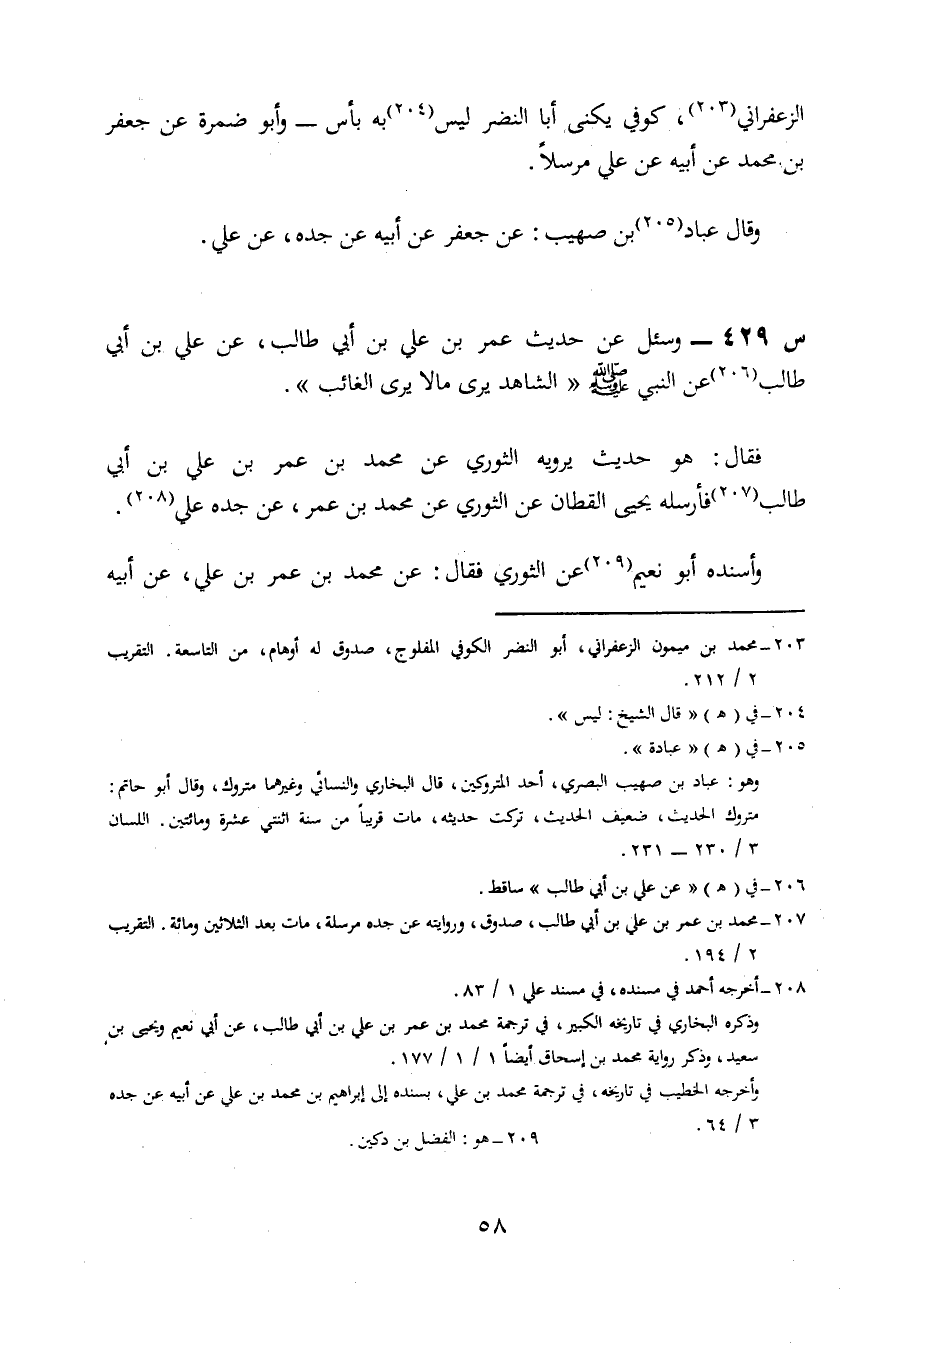 الزعفراني(٢٠٣)، كوفي يكنى أبا النضر ليس(٢٠٤)به بأس ــ وأبو ضمرة عن جعفر
بن محمد عن أبيه عن علي مرسلاً.
وقال عباد(٢٠٥)بن صهيب : عن جعفر عن أبيه عن جده، عن علي .
س ٤٢٩ ــ وسئل عن حديث عمر بن علي بن أبي طالب، عن علي بن أبي
طالب(٢٠٦)عن النبي ﷺ « الشاهد يرى مالا يرى الغائب » .
فقال : هو حديث يرويه الثوري عن محمد بن عمر بن علي بن أبي
طالب(٢٠٧)فأرسله يحيى القطان عن الثوري عن محمد بن عمر، عن جده علي(٢٠٨) .
وأسنده أبو نعيم(٢٠٩)عن الثوري فقال : عن محمد بن عمر بن علي، عن أبيه
٢٠٣ــ محمد بن ميمون الزعفراني، أبو النضر الكوفي المفلوج، صدوق له أوهام، من التاسعة . التقريب
٢ / ٢١٢ .
٢٠٤ــ في ( هـ ) « قال الشيخ : ليس » .
٢٠٥ــ في ( هـ ) « عبادة » .
وهو : عباد بن صهيب البصري، أحد المتروكين، قال البخاري والنسائي وغيرهما متروك، وقال أبو حاتم :
متروك الحديث، ضعيف الحديث، تركت حديثه، مات قريباً من سنة اثنتي عشرة ومائتين . اللسان
٣ / ٢٣٠ ــ ٢٣١ .
٢٠٦ــ في ( هـ ) « عن علي بن أبي طالب » ساقط .
٢٠٧ــ محمد بن عمر بن علي بن أبي طالب، صدوق، وروايته عن جده مرسلة، مات بعد الثلاثين ومائة . التقريب
٢ / ١٩٤ .
٢٠٨ــ أخرجه أحمد في مسنده، في مسند علي ١ / ٨٣ .
وذكره البخاري في تاريخه الكبير، في ترجمة محمد بن عمر بن علي بن أبي طالب، عن أبي نعيم ويحيى بن
سعيد، وذكر رواية محمد بن إسحاق أيضاً ١ / ١ / ١٧٧ .
وأخرجه الخطيب في تاريخه، في ترجمة محمد بن علي، بسنده إلى إبراهيم بن محمد بن علي عن أبيه عن جده
٣ / ٦٤ .
٢٠٩ــ هو : الفضل بن دكين .
٥٨